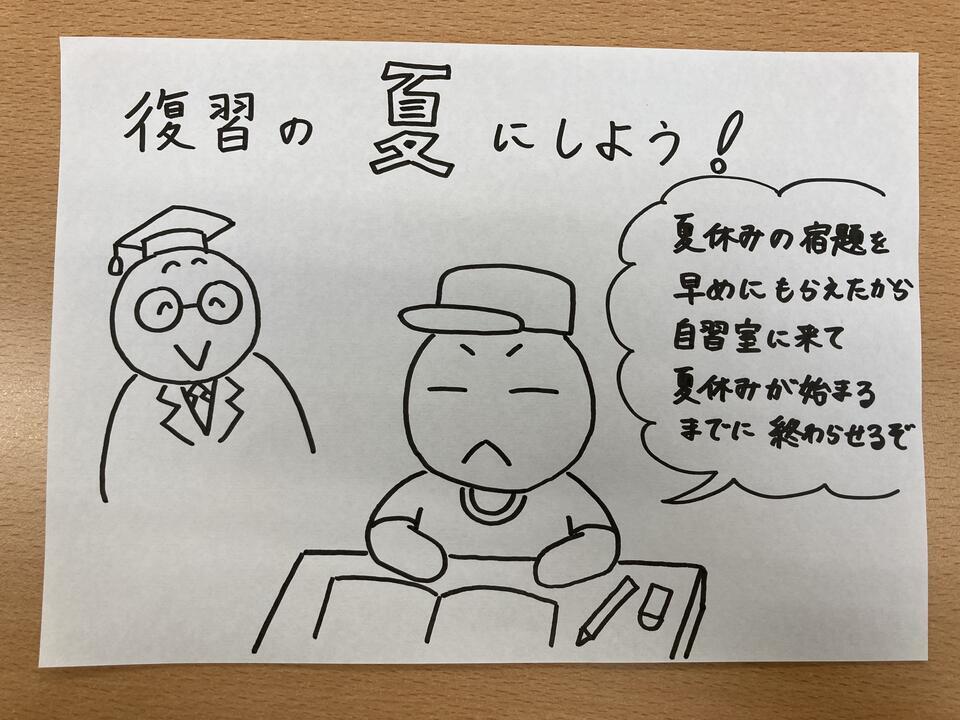 復習の夏にしよう!
夏休みの宿題を
早めにもらえたから
自習室に来て
夏休みが始まる
までに終わらせるぞ